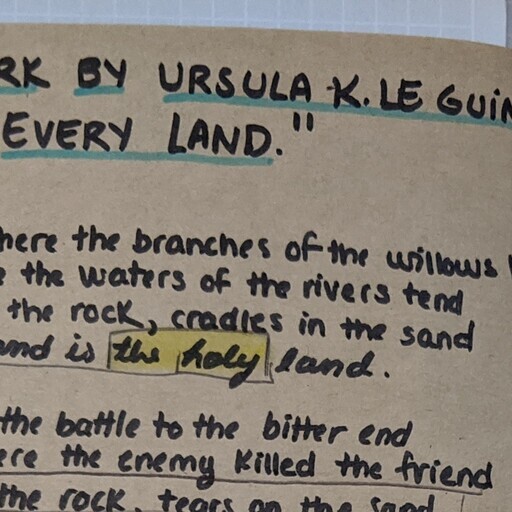 RK BY URSULA K. LE GUIN
EVERY LAND."
here the branches of the willows
the waters of the rivers tend
the rock, cradles in the sand
and is the holy land.
the battle to the bitter end
ere the enemy killed the friend
the rock, tears on the sand